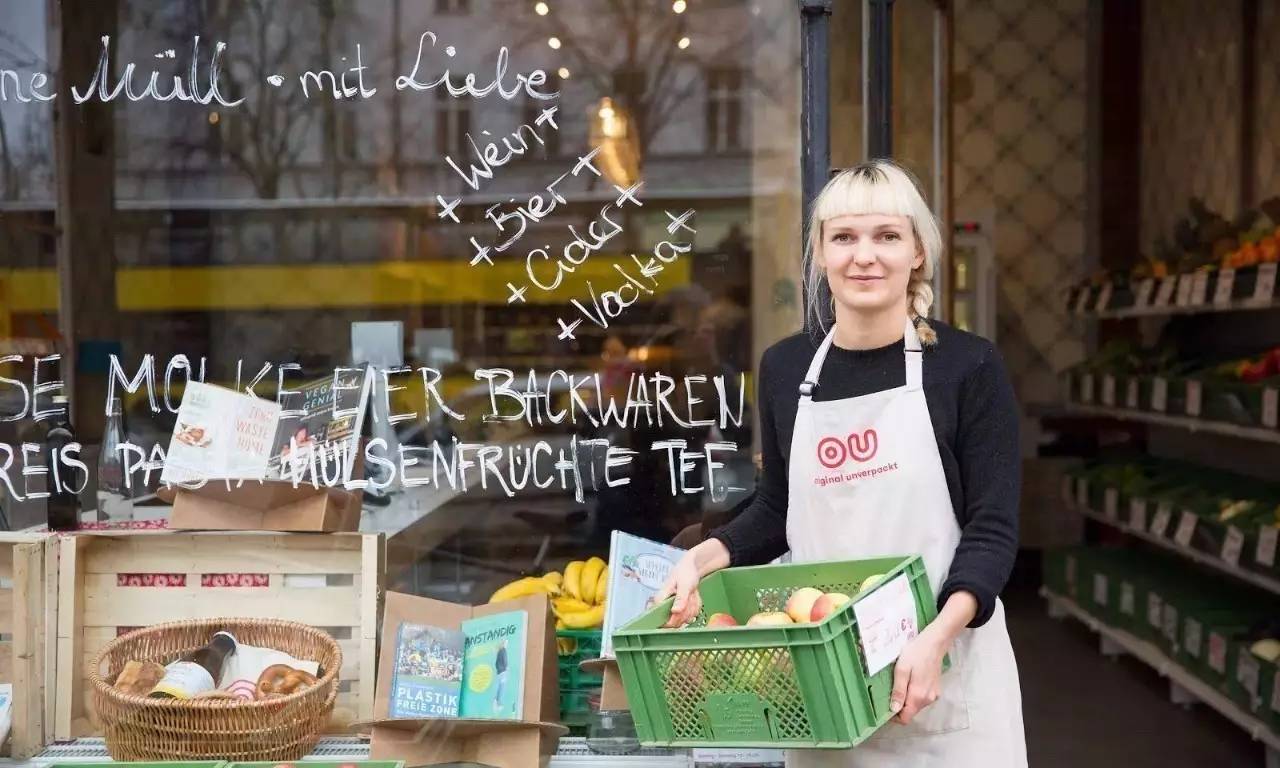 ne Müll • mit Liebe
+ Wein +
+ Bier +
+ Cider +
+ Vodka +
SE MOLKE EIER BACKWAREN
REIS PASTA HÜLSENFRÜCHTE TEE
ZERO
WASTE
HOME
VEGAN
GENIAL
OU
original unverpackt
PLASTIK
FREIE ZONE
ANSTÄNDIG